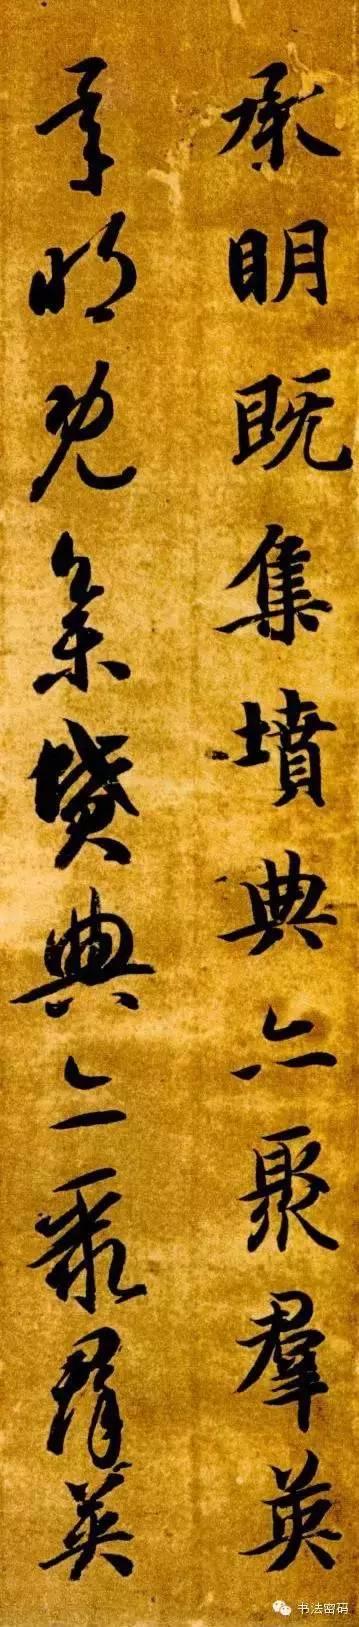 承明既集墳典亦聚羣英
承明既集墳典亦聚群英
书法密码